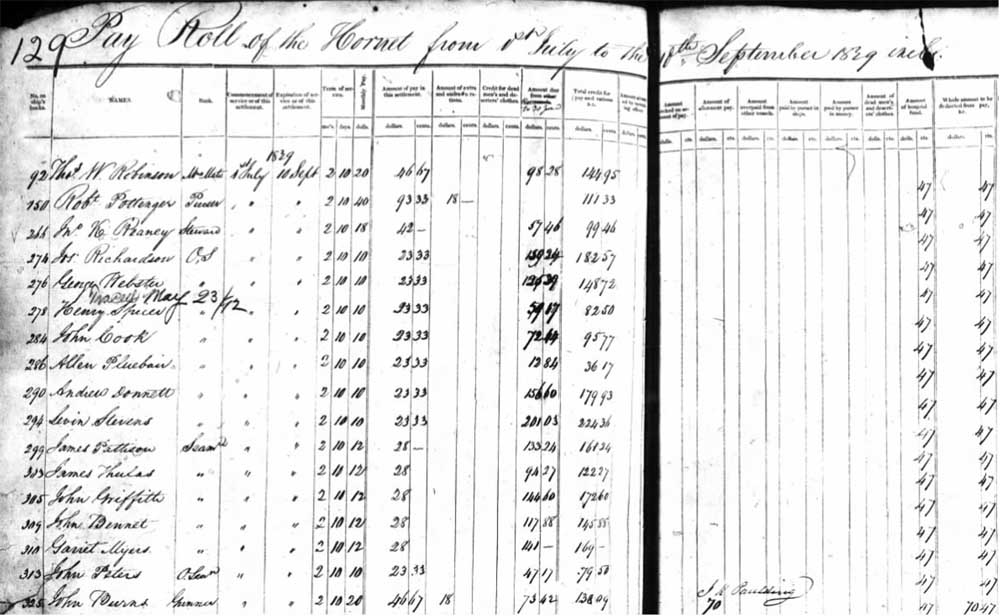 129 Pay Roll of the Hornet from 1st July to the 10th September 1829 incls.
No. on ship's books. NAMES. Rank. Commencement of service or of this settlement. Expiration of service or of this settlement. Term of service. Monthly Pay. Amount of pay in this settlement. Amount of extra and undrawn rations. Credit for dead men's and deserters' clothes. Amount due from Total credit for pay and rations &c. Amount of allotment pay. Amount overpaid from other vessels. Amount paid by purser in ships. Amount paid by purser in money. Amount of dead men's, and deserters' clothes. Amount of hospital fund. Whole amount to be deducted from pay, &c.
mo's. days dolls. dollars. cents. dollars. cents. dollars. cents. dollars. cents. dollars. cents. dolls. cts. dollars. cts. dollars. cts. dollars. cts. dollars. cts. dollars. cts. dollars. cts.
1829
92 Thos. W. Robinson Ms Mate 1st July 10 Sept 2 10 20 46 67 98 28 144 95 47 47
150 Robt. Pottenger Purser " " 2 10 40 93 33 18 — 111 33 47 47
266 Jno. K. Roaney Steward " " 2 10 18 42 — 57 46 99 46 47 47
274 Jos. Richardson O.S " " 2 10 10 23 33 159 24 182 57 47 47
276 George Webster " " " 2 10 10 23 33 125 39 148 72 47 47
May 23/12
278 Henry Spicer " " " 2 10 10 23 33 59 17 82 50 47 47
284 John Cook " " " 2 10 10 23 33 72 44 95 77 47 47
286 Allen " " " 2 10 10 23 33 12 84 36 17 47 47
290 Andrew Donnett " " " 2 10 10 23 33 156 60 179 93 47 47
294 Levin Stevens " " " 2 10 10 23 33 201 03 224 36 47 47
299 James Pattison Seamn " " 2 10 12 28 — 133 24 161 24 47 47
303 James " " " 2 10 12 28 94 27 122 27 47 47
305 John Griffith " " " 2 10 12 28 144 60 172 60 47 47
309 John Bennet " " " 2 10 12 28 117 88 145 88 47 47
310 Garret Myers " " " 2 10 12 28 141 — 169 — 47 47
313 John Peters O.Seamn " " 2 10 10 23 33 47 17 79 50 47 47
J K Paulding
325 John Burns Gunner " " 2 10 20 46 67 18 73 42 138 09 70 47 70 47